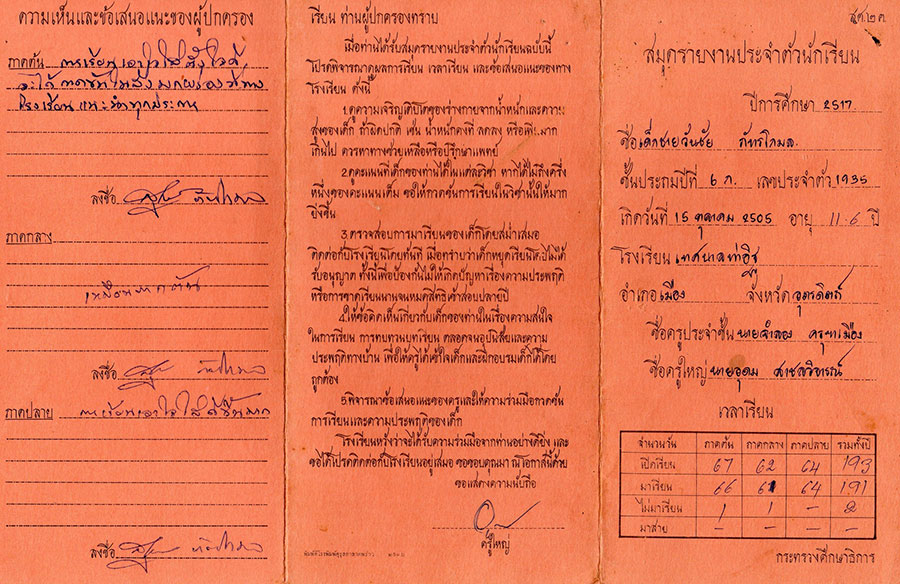 ความเห็นและข้อเสนอแนะของผู้ปกครอง
ภาคต้น การเรียนเอาใจใส่ดี
โรงเรียนแนะนำทุกประการ
ลงชื่อ
ภาคกลาง
เหมือนภาคต้น
ลงชื่อ
ภาคปลาย การเรียนเอาใจใส่ดีขึ้นมาก
ลงชื่อ
เรียน ท่านผู้ปกครองทราบ
เมื่อท่านได้รับสมุดรายงานประจำตัวนักเรียนฉบับนี้
โปรดพิจารณาดูผลการเรียน เวลาเรียน และข้อเสนอแนะของทาง
โรงเรียน ดังนี้
1.ดูความเจริญเติบโตของร่างกายจากน้ำหนักและความ
สูงของเด็ก ถ้าผิดปกติ เช่น น้ำหนักคงที่ ลดลง หรือเพิ่มมาก
เกินไป ควรหาทางช่วยเหลือหรือปรึกษาแพทย์
2.ดูคะแนนที่เด็กของท่านได้ในแต่ละวิชา หากได้ไม่ถึงครึ่ง
หนึ่งของคะแนนเต็ม ขอให้กวดขันการเรียนในวิชานั้นให้มาก
ยิ่งขึ้น
3.ตรวจสอบการมาเรียนของเด็กโดยสม่ำเสมอ
ติดต่อกับโรงเรียนโดยทันที เมื่อทราบว่าเด็กหยุดเรียนโดยไม่ได้
รับอนุญาต ทั้งนี้เพื่อป้องกันไม่ให้เกิดปัญหาเรื่องความประพฤติ
หรือการขาดเรียนนานจนหมดสิทธิ์เข้าสอบปลายปี
4.ให้ข้อคิดเห็นเกี่ยวกับเด็กของท่านในเรื่องความสนใจ
ในการเรียน การทบทวนบทเรียน ตลอดจนอุปนิสัยและความ
ประพฤติทางบ้าน เพื่อให้ครูได้เข้าใจเด็กและฝึกอบรมเด็กได้โดย
ถูกต้อง
5.พิจารณาข้อเสนอแนะของครูและให้ความร่วมมือกวดขัน
การเรียนและความประพฤติของเด็ก
โรงเรียนหวังว่าจะได้รับความร่วมมือจากท่านอย่างดียิ่ง และ
ขอได้โปรดติดต่อกับโรงเรียนอยู่เสมอ ขอขอบคุณมา ณ โอกาสนี้ด้วย
ขอแสดงความนับถือ
ครูใหญ่
สมุดรายงานประจำตัวนักเรียน
ปีการศึกษา 2517
ชื่อ เด็กชายวันชัย ภัทรโกมล
ชั้นประถมปีที่ 6 ก. เลขประจำตัว 1935
เกิดวันที่ 15 ตุลาคม 2505 อายุ 11.6 ปี
โรงเรียน เทศบาลท่าอิฐ
อำเภอ เมือง จังหวัด อุตรดิตถ์
ชื่อครูประจำชั้น นายจำลอง
ชื่อครูใหญ่ นายอุดม
เวลาเรียน
จำนวนวัน ภาคต้น ภาคกลาง ภาคปลาย รวมทั้งปี
เปิดเรียน 67 62 64 193
มาเรียน 66 61 64 191
ไม่มาเรียน 1 1 – 2
มาสาย – – – –
กระทรวงศึกษาธิการ